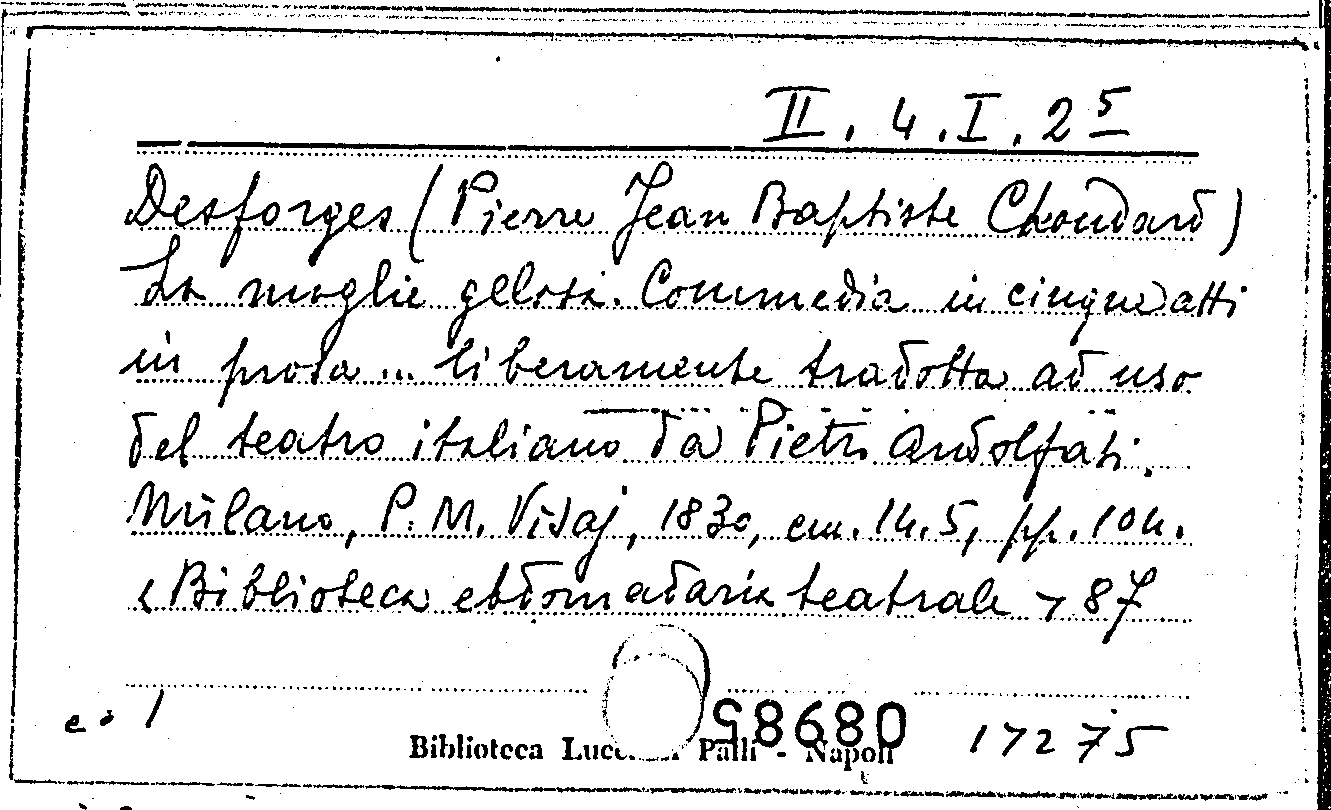 II. 4. I. 2 5
Desforges (Pierre Jean Baptiste Choudard)
La moglie gelosa. Commedia in cinque atti
in prosa ... liberamente tradotta ad uso
del teatro italiano da Pietro Andolfati.
Milano, P. M. Visaj, 1830, cm. 14.5, pp. 104.
«Biblioteca ebdomadaria teatrale» 87
58680 17275
Biblioteca Palli - Napoli